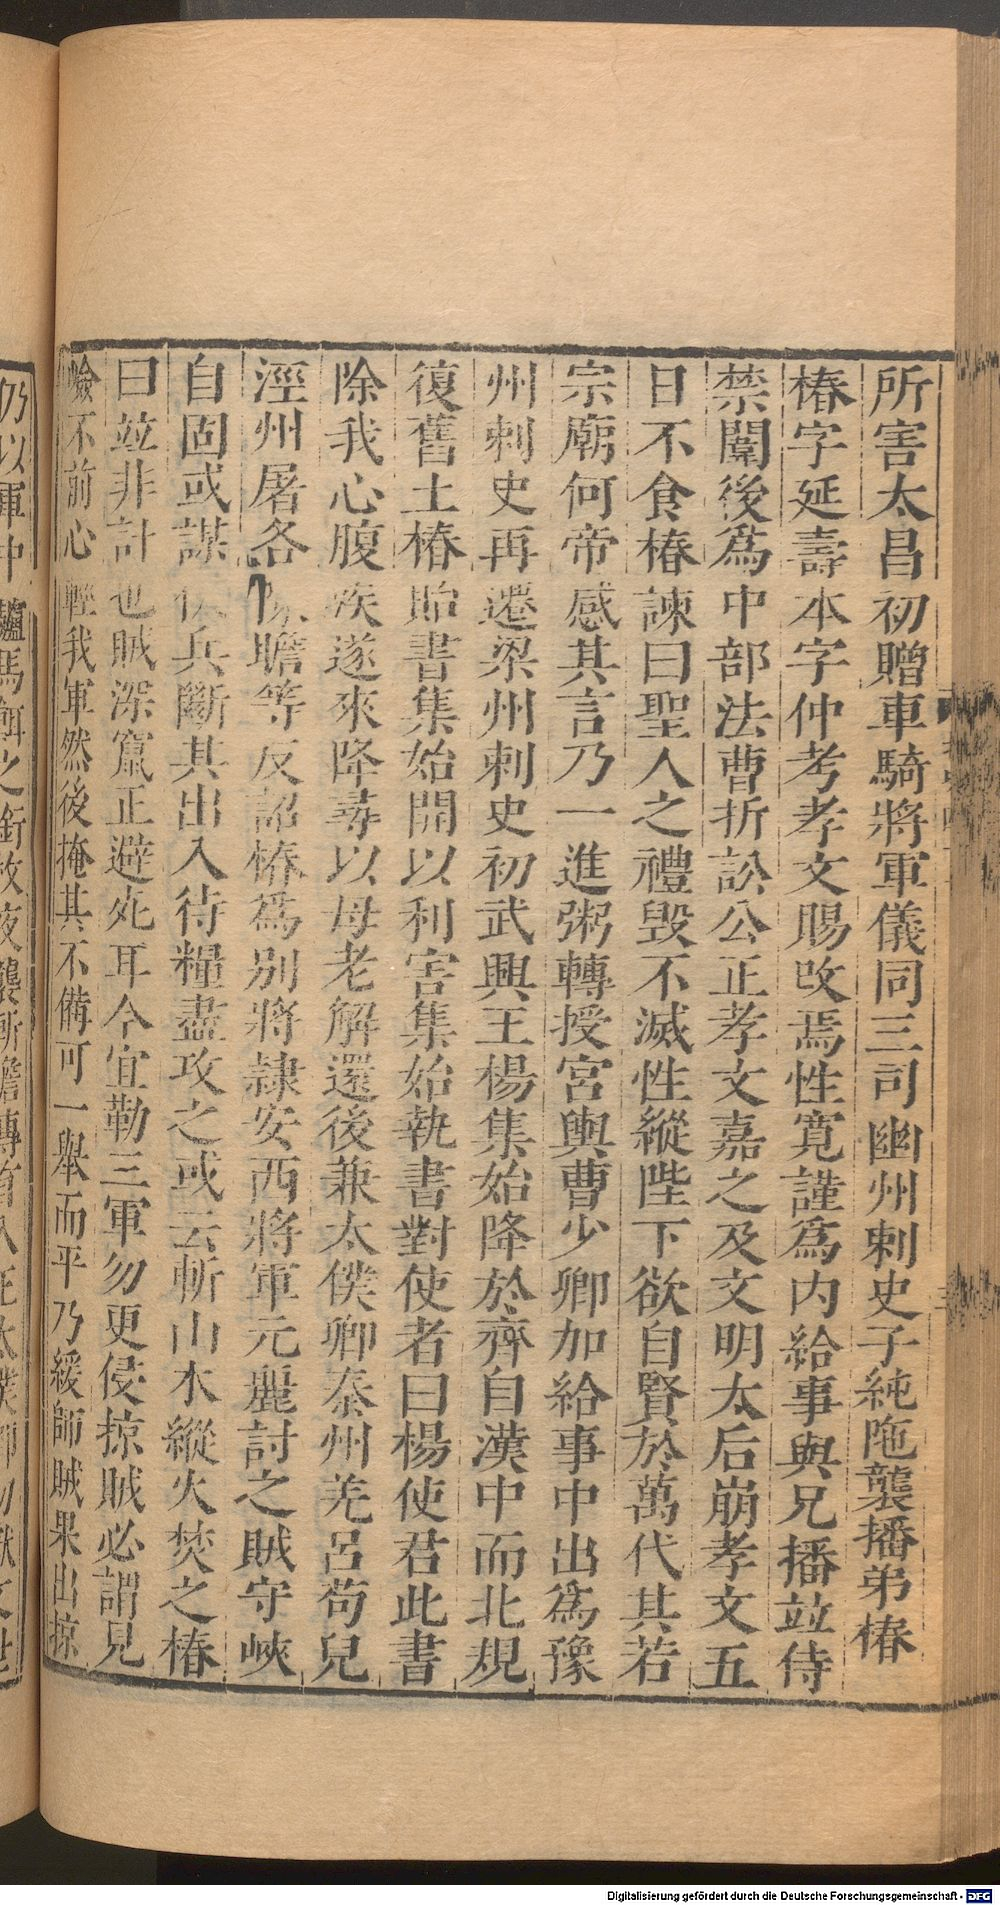 所害太昌初贈車騎將軍儀同三司幽州刺史子純陁襲播弟椿
椿字延壽本字仲考孝文賜改焉性寬謹爲内給事與兄播竝侍
禁闈後爲中部法曹折訟公正孝文嘉之及文明太后崩孝文五
日不食椿諫曰聖人之禮毁不滅性縱陛下欲自賢於萬代其若
宗廟何帝感其言乃一進粥轉授宮輿曹少卿加給事中出爲豫
州刺史再遷梁州刺史初武興王楊集始降於齊自漢中而北規
復舊土椿貽書集始開以利害集始執書對使者曰楊使君此書
除我心腹疾遂來降尋以母老解還後兼太僕卿秦州羌呂苟兒
涇州屠各陳瞻等反詔椿爲别將隷安西將軍元麗討之賊守峽
自固或謀伏兵斷其出入待糧盡攻之或云斬山木縱火焚之椿
曰竝非計也賊深竄正避死耳今宜勒三軍勿更侵掠賊必謂見
險不前心輕我軍然後掩其不備可一舉而平乃緩師賊果出掠
乃以軍中驢馬餌之銜枚夜襲斬瞻傳首入正太僕卿初獻文世
Digitalisierung gefördert durch die Deutsche Forschungsgemeinschaft - DFG